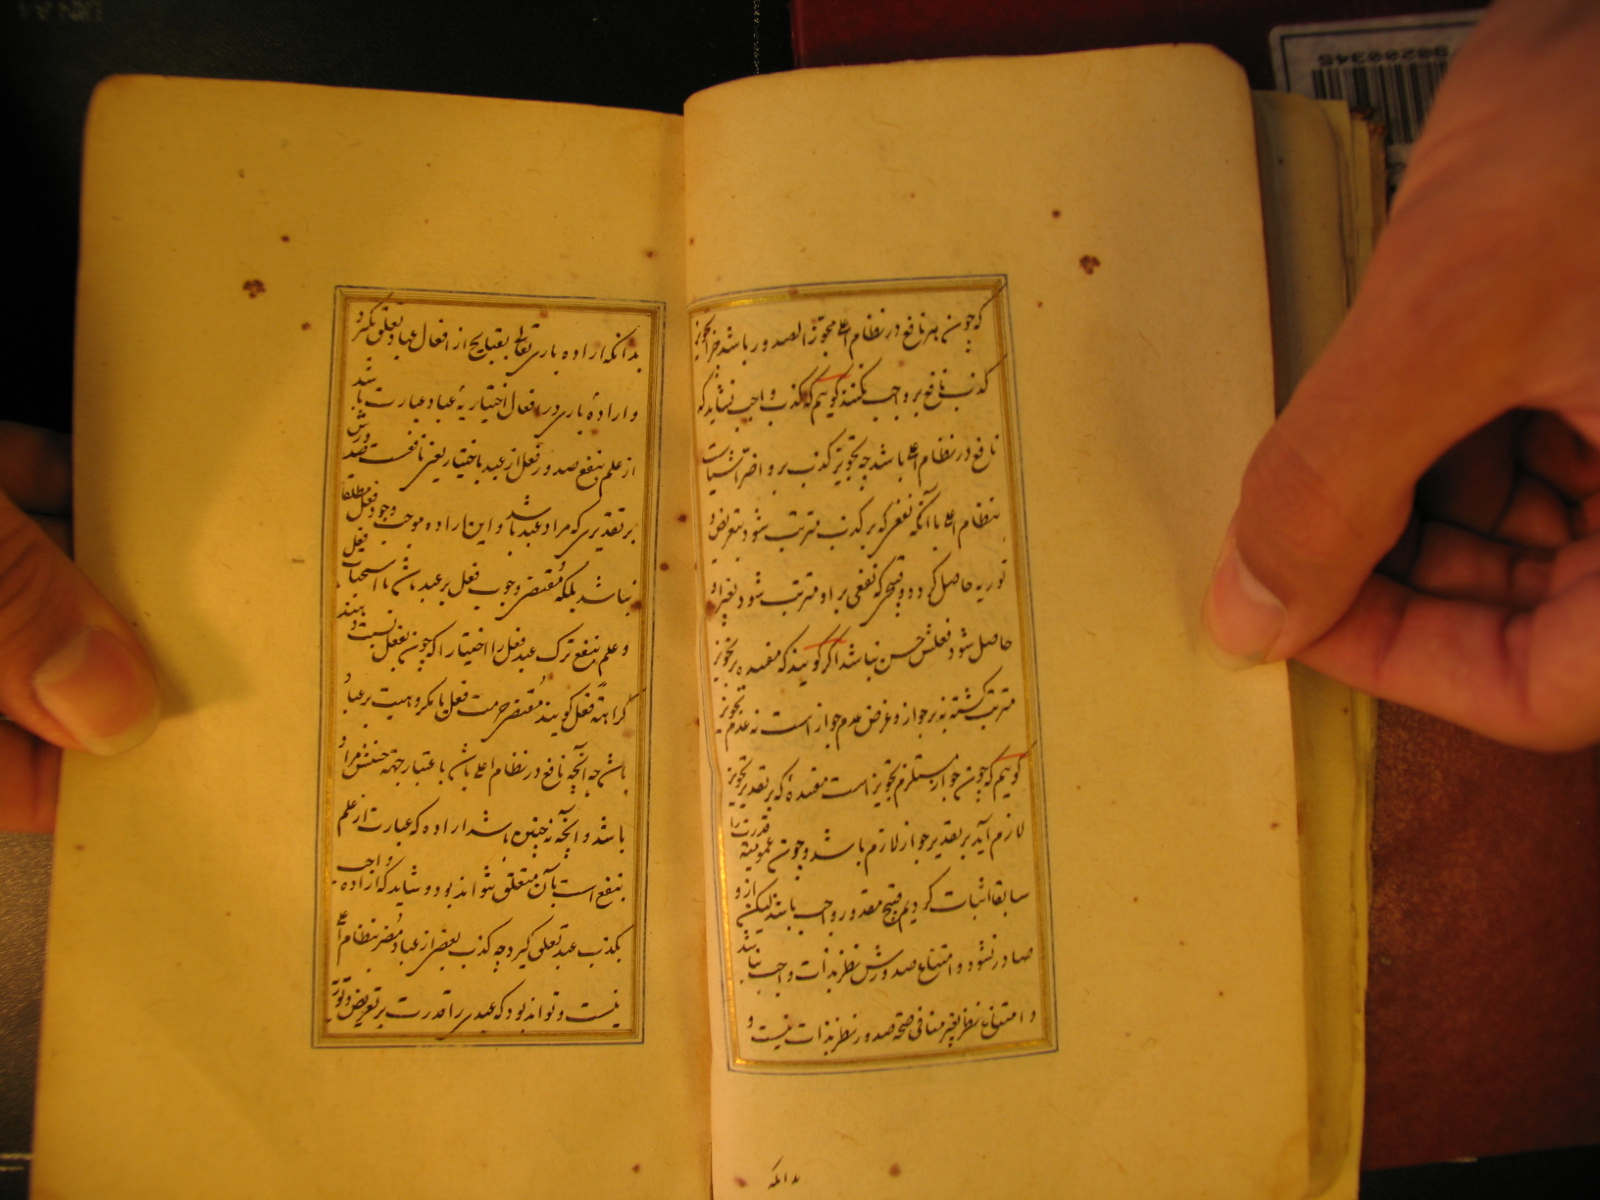 که چون هر نافع در نظام اعلی مجوز الصدور باشد چرا تجویز
کذب نافع بر واجب نکنند گوییم که کذب واجب نشاید که
نافع در نظام اعلی باشد چه تجویز کذب برو
بنظام اعلی با آنکه نفعی که بر کذب مترتب شود بتعریض و
توریه حاصل کرده و قبحی که نفعی برو مترتب شود بغیر او
حاصل شود فعلش حسن نباشد اگر گویند که مفسده بر تجویز
مترتب گشته نه بر جواز و غرض عدم جواز است نه عدم تجویز
گوییم که چون جواز مستلزم تجویز است مفسدهٔ که بر تقدیر تجویز
لازم آید بر تقدیر جواز لازم باشد و چون عمومیت قدرت را
سابقا اثبات کردیم قبیح مقدور واجب باشد لیکن ازو
صادر نشود و امتناع صدورش نظر بذات واجب نباشد
و امتناع نظر بغیر منافی صحه صدور نظر بذات نیست و
بدانکه
بدانکه اراده باری تعالی بقبایح از افعال عباد تعلق نگیرد
و ارادهٔ باری در افعال اختیاریهٔ عباد عبارت باشد
از علم بنفع صدور فعل از عبد باختیار یعنی نافعست صدورش
بر تقدیری که مراد عبد باشد و این اراده موجب وجود فعل مطلقا
نباشد بلکه مقتضی وجوب فعل بر عبد باشد یا استحباب فعل
و علم بنفع ترک عبد فعل را اختیارا که چون بفعل نسبت دهند
کراهة فعل گویند مقتضی حرمت فعل یا مکروهیت بر عباد
باشد چه آنچه نافع در نظام اعلی باشد باعتبار جهة حسنش مراد
باشد و آنچه نه چنین باشد اراده که عبارت از علم
بنفع است بآن متعلق نتواند بود و شاید که اراده واجب
بکذب عبد تعلق گیرد چه کذب بعضی از عباد مضر بنظام اعلی
نیست و تواند بود که عبدی را قدرت بر تعریض و توریه
80200345